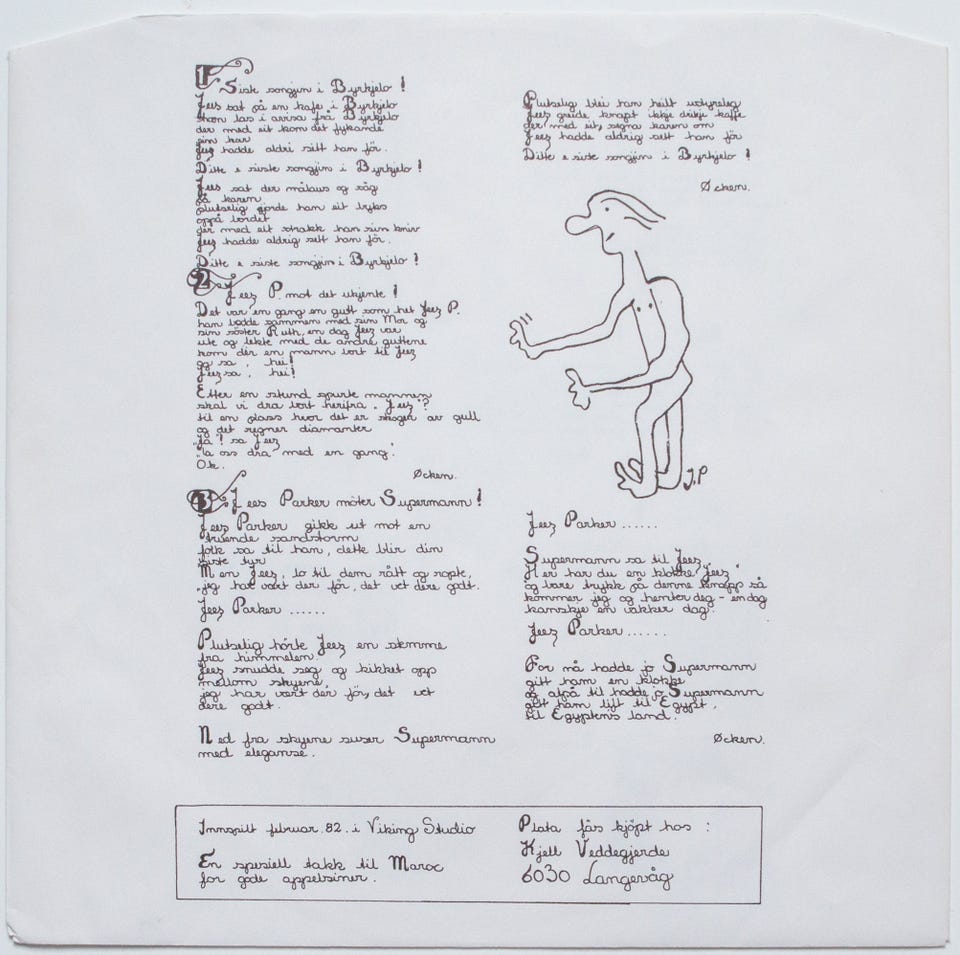 1 Siste songjen i Byrkjelo !
Jees sat på en kafe i Byrkjelo
han las i avisa frå Byrkjelo
der med eit kom det fykande
ein kar
Jees hadde aldri sett han før.
Ditte e siste songjin i Byrkjelo !
Jees sat der målaus og såg
på karen
plutselig gjorde han eit byks
oppå bordet
der med eit strakk han sin kniv
Jees hadde aldrig sett han før.
Ditte e siste songjin i Byrkjelo !
2 Jeez P. mot det ukjente !
Det var en gang en gutt som het Jeez P.
han bodde sammen med sin Mor og
sin söster Ruth, en dag Jeez var
ute og lekte med de andre guttene
kom der en mann bort til Jeez
og sa , hei!
Jeez sa , hei!
Etter en stund spurte mannen
skal vi dra bort herifra „ Jeez"?
til en plass hvor det er skogen av gull
og det regner diamanter
„Ja"! sa Jeez
„la oss dra" med en gang!
Ok.
Øcken.
3 Jees Parker möter Supermann !
Jeez Parker gikk ut mot en
truende sandstorm
folk sa til han, dette blir din
siste tur
Men Jeez, lo til dem rått og ropte,
„jeg har vært der för, det vet dere godt.
Jeez Parker ......
Plutselig hörte Jeez en stemme
fra himmelen.
Jeez snudde seg og kikket opp
mellom skyene,
jeg har vært der för, det vet
dere godt.
Ned fra skyene suser Supermann
med eleganse.
Plutselig blei han heilt udyreleg
Jeez greide knapt ikkje drikje kaffe
der med eit, segna karen om
Jeez hadde aldrig sett han för
Ditte e siste songjin i Byrkjelo !
Øcken.
J.P
Jeez Parker ......
Supermann sa til Jeez,
Her har du en klokke „Jeez"
og bare trykk på denne knapp så
kommer jeg og henter deg - en dag
kanskje en vakker dag.
Jeez Parker ......
For nå hadde jo Supermann
gitt ham en klokke
og attpå til hadde jo Supermann
gitt ham lift til Egypt,
til Egyptens land.
Øcken.
Innspilt februar. 82. i Viking Studio
En spesiell takk til Maroc
for gode appelsiner.
Plata fås kjöpt hos :
Kjell Veddegjerde
6030 Langevåg